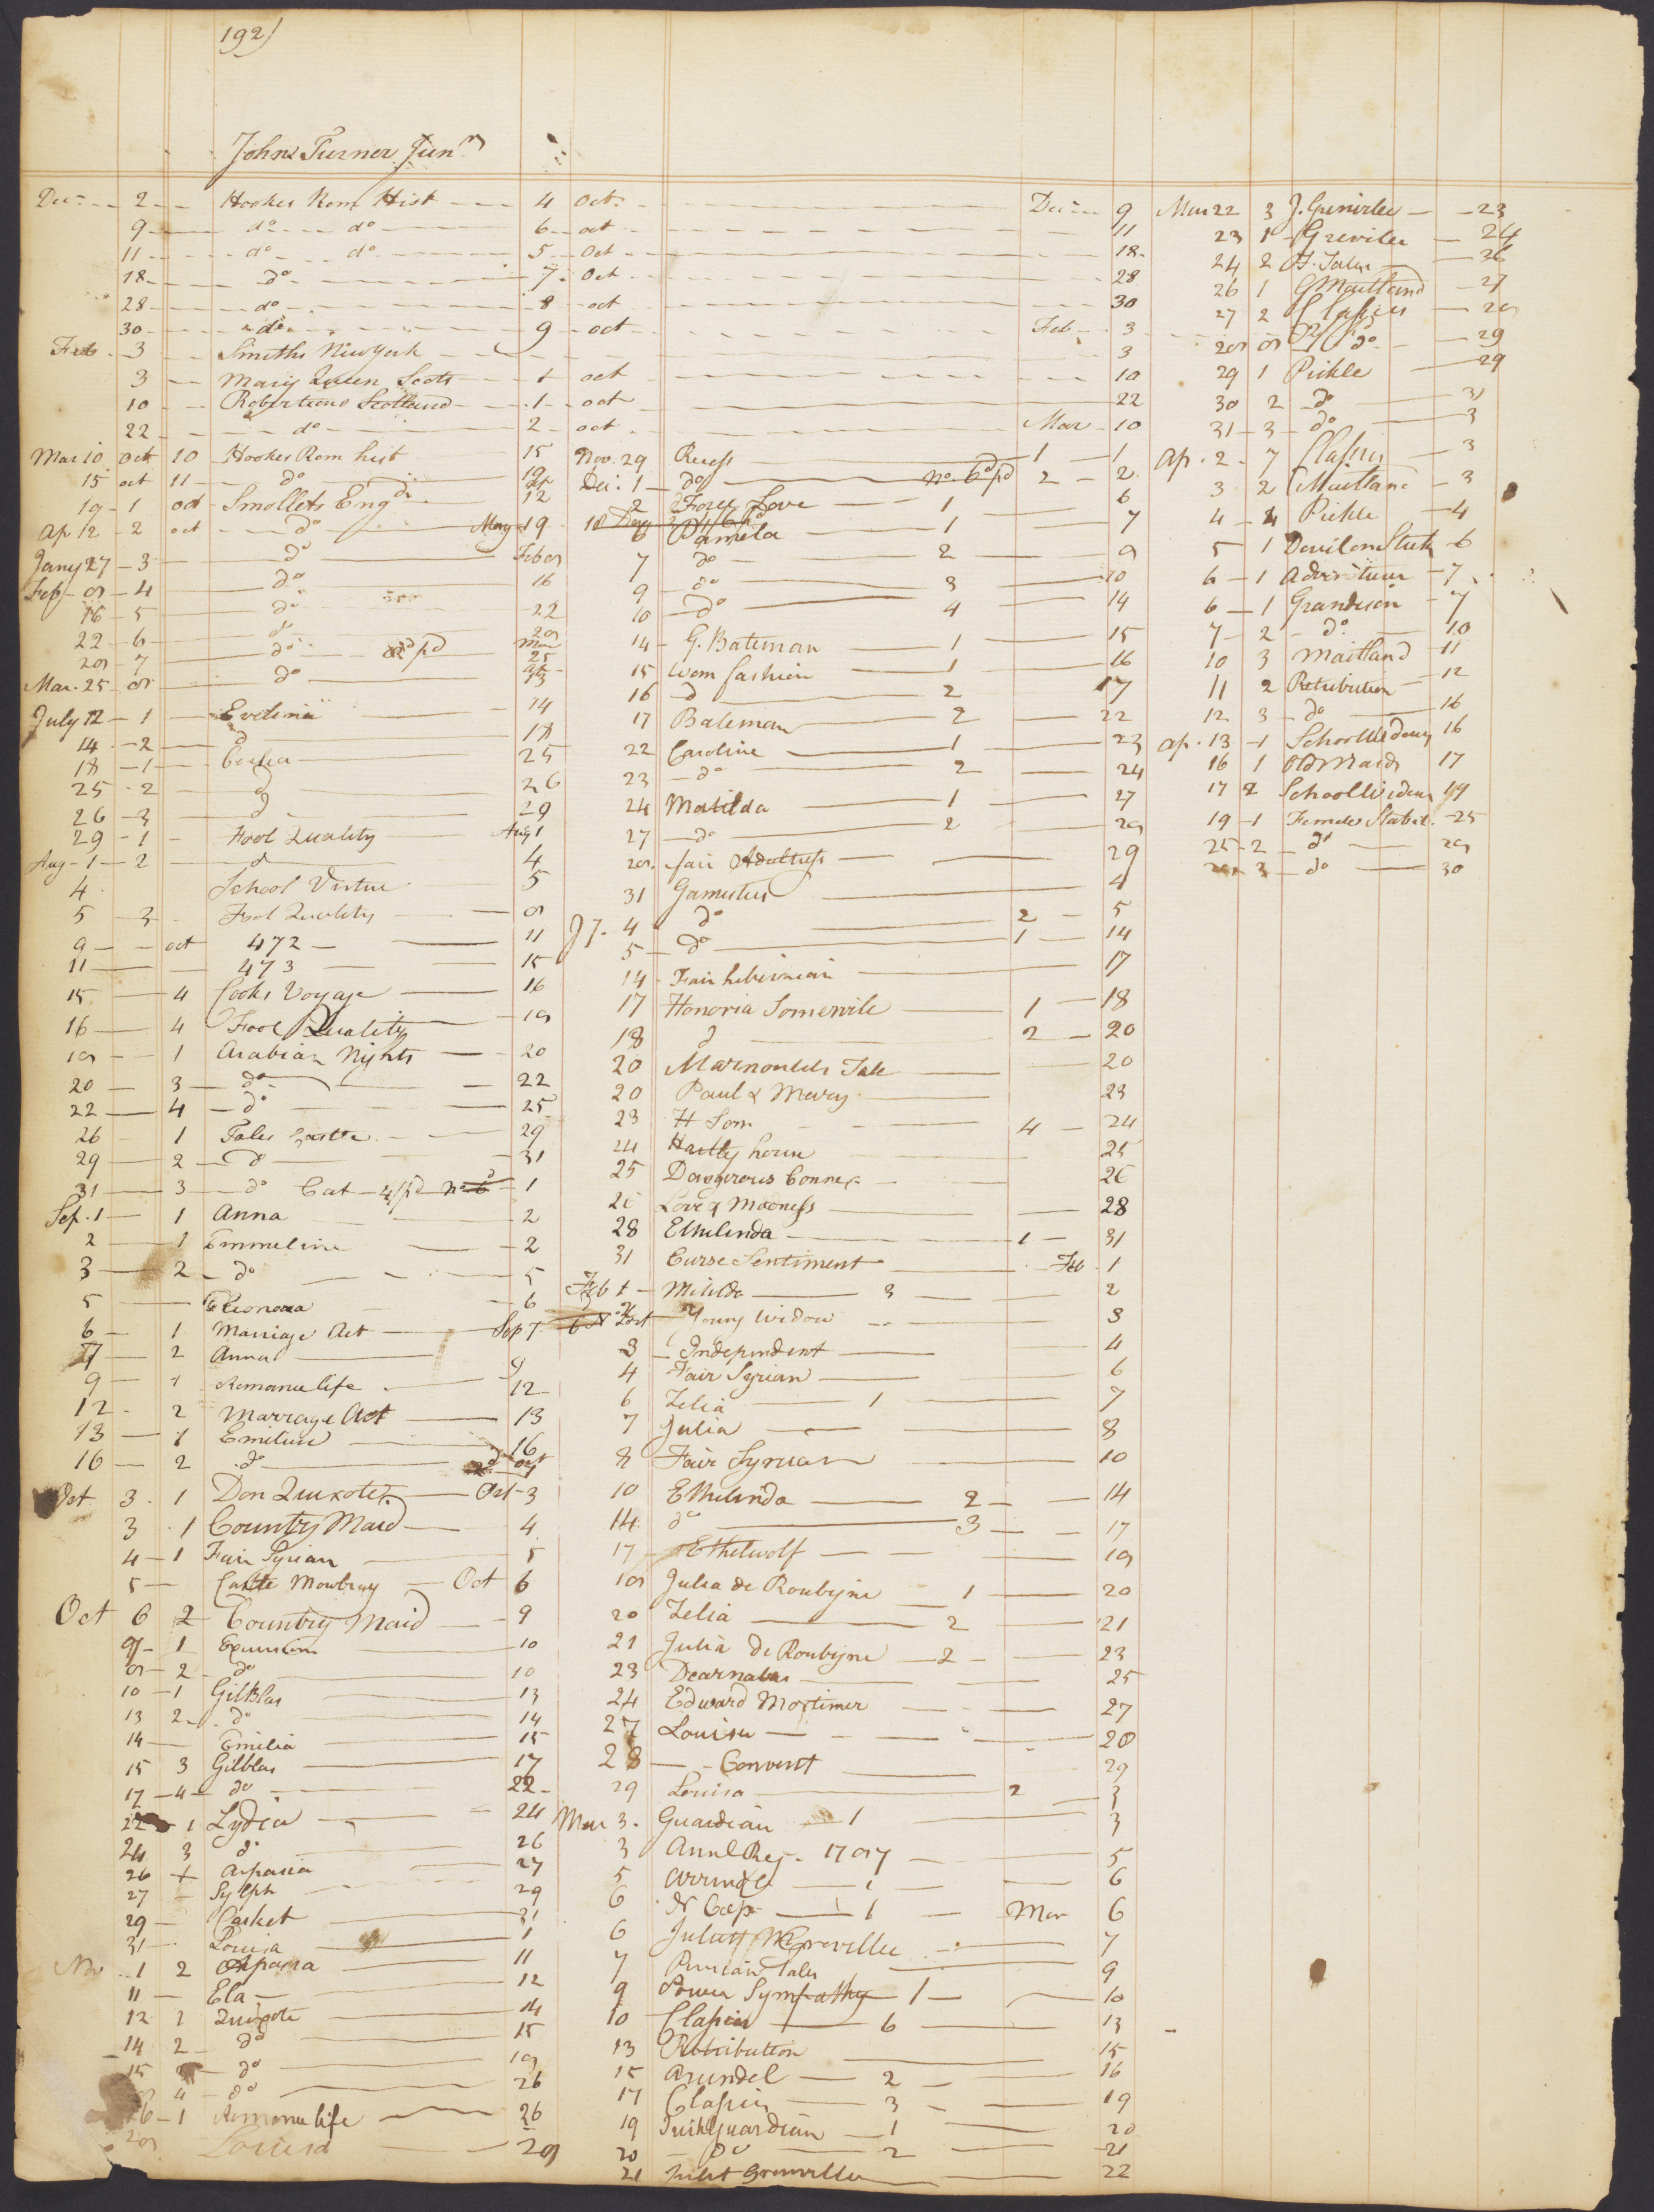 192)
John Turner Junr
Dec 2 Hookes Rom Hist 4 Oct Dec 9
9 do do 6 oct 11
11 do do 5 Oct 18
18 do 7 Oct 28
28 do 8 oct 30
30 do 9 oct Feb 3
Feb 3 Smiths New York 3
3 Mary Queen Scots 1 oct 10
10 Robertsons Scotland 1 oct 22
22 do 2 oct Mar 10
Mar 10 Oct 10 Hookes Rom hist 15
15 oct 11 do 19
19 1 oct Smollets Engd 12
Ap 12 2 oct do May 19
Jany 27 3 do Feb 9
Feb 9 4 do 16
16 5 do 22
22 6 do 29
29 7 do pd Mar 25
Mar. 25 8 do
July 12 1 Evelina 14
14 2 do 18
18 1 Cecilia 25
25 2 do 26
26 3 do 29
29 1 Fool Quality Aug 1
Aug 1 2 do 4
4 School Virtue 5
5 3 Fool Quality 9
9 oct 472 11
11 473 15
15 4 Cooks Voyage 16
16 4 Fool Quality 19
19 1 Arabian Nights 20
20 3 do 22
22 4 do 25
26 1 Tales Castle 29
29 2 do 31
31 3 do Cat 1
Sep. 1 1 Anna 2
2 1 Emmeline 2
3 2 do 5
5 Eleonora 6
6 1 Marriage Act Sep 7
7 2 Anna 9
9 1 Romance life 12
12 2 Marriage Act 13
13 1 Emeline 16
16 2 do
Oct 3 1 Don Quixote Oct 3
3 1 Country Maid 4
4 1 Fair Syrian 5
5 Castle Mowbray Oct 6
Oct 6 2 Country Maid 9
9 1 Excursion 10
9 2 do 10
10 1 GilBlas 13
13 2 do 14
14 Emilia 15
15 3 Gilblas 17
17 4 do 22
22 1 Lydia 24
24 3 do 26
26 1 Aspasia 27
27 Sylph 29
29 Casket 31
31 Louisa 1
Nov 1 2 Aspasia 11
11 Ela 12
12 1 Quixote 14
14 2 do 15
15 do 19
4 do 26
26 1 Romance life 26
29 Louisa 29
Nov. 29 Recess 1 1
Dec. 1 do 2 2
2 Force Love 1 6
6 Pamela 1 7
7 do 2 9
9 do 3 10
10 do 4 14
14 G. Bateman 1 15
15 Wom fashion 1 16
16 do 2 17
17 Bateman 2 22
22 Caroline 1 23
23 do 2 24
24 Matilda 1 27
27 do 2 29
29 fair Adultress 29
31 Gamesters 4
Jy. 4 do 2 5
5 do 1 14
14 Fair hibernian 17
17 Honoria Somervile 1 18
18 do 2 20
20 Marmontels Tale 20
20 Paul & Mary 23
23 H Som 4 24
24 Hartly house 25
25 Dangerous Connex 26
26 Love & Madness 28
28 Ethelinda 1 31
31 Curse Sentiment Feb. 1
Feb 1 Matilda 3 2
2 Young Widow 3
3 Independent 4
4 Fair Syrian 6
6 Zelia 1 7
7 Julia 8
8 Fair Syrian 10
10 Ethelinda 2 14
14 do 3 17
17 Ethelwolf 19
19 Julia de Roubigne 1 20
20 Zelia 2 21
21 Julia De Roubigne 2 23
23 Dearnalas 25
24 Edward Mortimer 27
27 Louisa 28
28 Convent 29
29 Louisa 2 3
Mar 3. Guardian 1 3
3 Annl Reg. 1787 5
5 Arundel 1 6
6 1 Mar 6
6 Juliet Grenville 7
7 Persian Tales 9
9 Power Sympathy 1 10
10 Classics 6 13
13 Retribution 15
15 Arundel 2 16
17 Classics 3 19
19 Guardian 1 20
20 do 2 21
21 Juliet Grenville 22
Mar 22 3 J. Grenville 23
23 1 Greville 24
24 2 F. Tales 26
26 1 G Maitland 27
27 2 Classics 29
29 8 do 29
29 1 Pickle 29
30 2 do 31
31 3 do 3
Ap. 2 7 Classics 3
3 2 Maitland 3
4 4 Pickle 4
5 1 Devil on Sticks 6
6 1 Adventurer 7
6 1 Grandison 7
7 2 do 10
10 3 Maitland 11
11 2 Retribution 12
12 3 do 16
Ap. 13 1 School Widows 16
16 1 Old Maids 17
17 2 School Widows 19
19 1 Female Stabil. 25
25 2 do 29
29 3 do 30